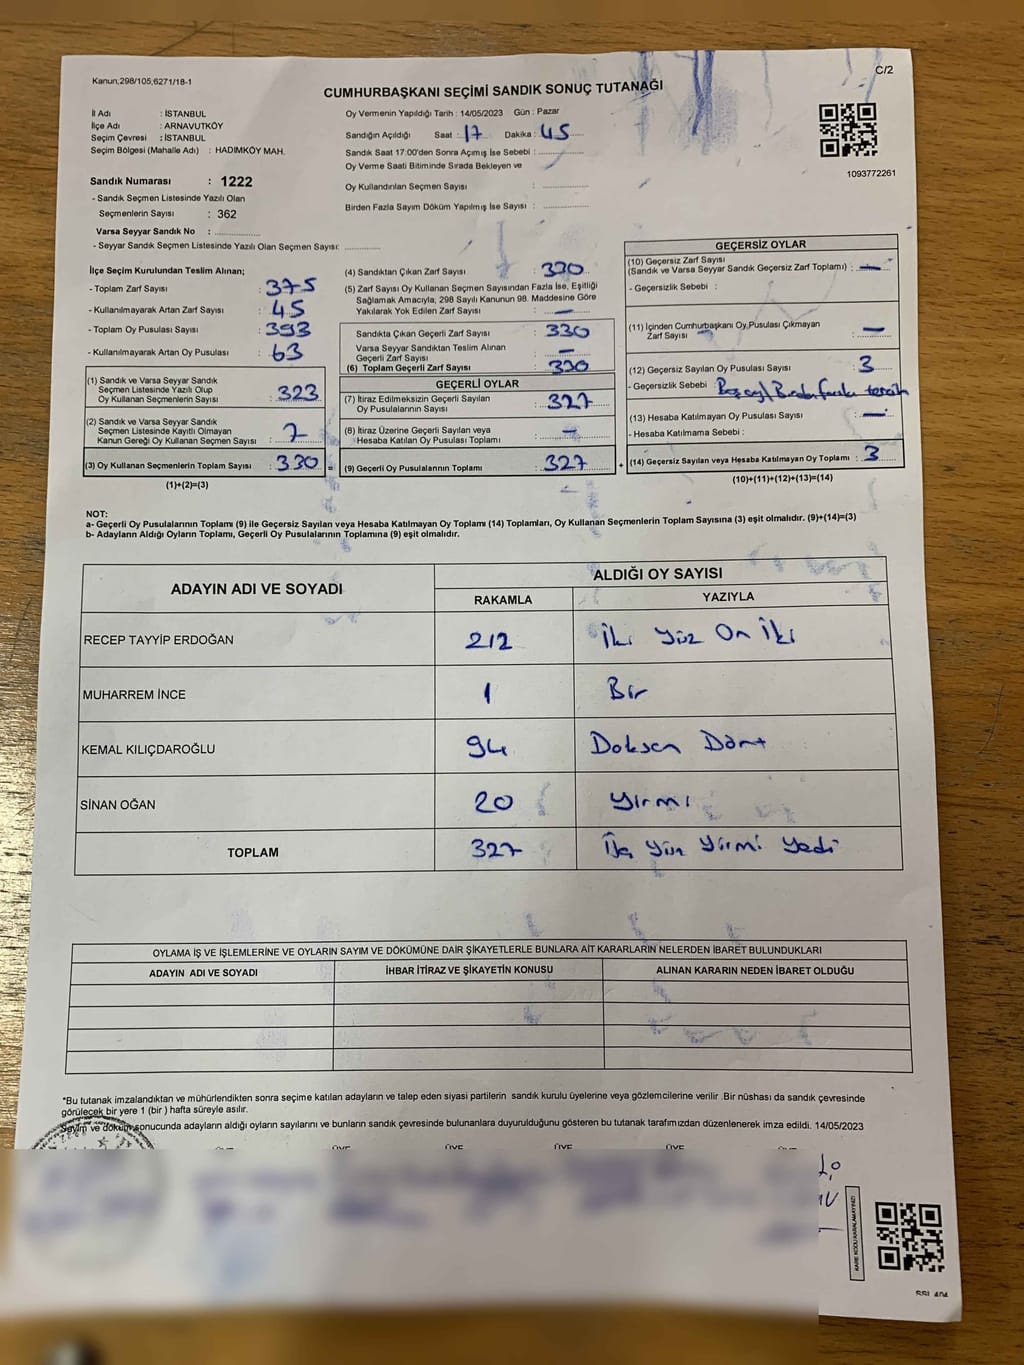 Kanun;298/105;6271/18-1
C/2
CUMHURBAŞKANI SEÇİMİ SANDIK SONUÇ TUTANAĞI
İl Adı : İSTANBUL
İlçe Adı : ARNAVUTKÖY
Seçim Çevresi : İSTANBUL
Seçim Bölgesi (Mahalle Adı) : HADIMKÖY MAH.
Sandık Numarası : 1222
- Sandık Seçmen Listesinde Yazılı Olan
Seçmenlerin Sayısı : 362
Varsa Seyyar Sandık No :
- Seyyar Sandık Seçmen Listesinde Yazılı Olan Seçmen Sayısı:
Oy Vermenin Yapıldığı Tarih : 14/05/2023 Gün : Pazar
Sandığın Açıldığı Saat : 17 Dakika : 45
Sandık Saat 17:00'den Sonra Açımış İse Sebebi :
Oy Verme Saati Bitiminde Sırada Bekleyen ve
Oy Kullandırılan Seçmen Sayısı :
Birden Fazla Sayım Döküm Yapılmış İse Sayısı :
1093772261
İlçe Seçim Kurulundan Teslim Alınan;
- Toplam Zarf Sayısı : 375
- Kullanılmayarak Artan Zarf Sayısı : 45
- Toplam Oy Pusulası Sayısı : 393
- Kullanılmayarak Artan Oy Pusulası : 63
(1) Sandık ve Varsa Seyyar Sandık
Seçmen Listesinde Yazılı Olup
Oy Kullanan Seçmenlerin Sayısı : 323
(2) Sandık ve Varsa Seyyar Sandık
Seçmen Listesinde Kayıtlı Olmayan
Kanun Gereği Oy Kullanan Seçmen Sayısı : 7
(3) Oy Kullanan Seçmenlerin Toplam Sayısı : 330
(1)+(2)=(3)
(4) Sandıktan Çıkan Zarf Sayısı : 330
(5) Zarf Sayısı Oy Kullanan Seçmen Sayısından Fazla İse, Eşitliği
Sağlamak Amacıyla, 298 Sayılı Kanunun 98. Maddesine Göre
Yakılarak Yok Edilen Zarf Sayısı : —
Sandıkta Çıkan Geçerli Zarf Sayısı : 330
Varsa Seyyar Sandıktan Teslim Alınan
Geçerli Zarf Sayısı : —
(6) Toplam Geçerli Zarf Sayısı : 330
GEÇERLİ OYLAR
(7) İtiraz Edilmeksizin Geçerli Sayılan
Oy Pusulalarının Sayısı : 327
(8) İtiraz Üzerine Geçerli Sayılan veya
Hesaba Katılan Oy Pusulası Toplamı : —
(9) Geçerli Oy Pusulalarının Toplamı : 327
GEÇERSİZ OYLAR
(10) Geçersiz Zarf Sayısı
(Sandık ve Varsa Seyyar Sandık Geçersiz Zarf Toplamı) : —
- Geçersizlik Sebebi :
(11) İçinden Cumhurbaşkanı Oy Pusulası Çıkmayan
Zarf Sayısı : —
(12) Geçersiz Sayılan Oy Pusulası Sayısı : 3
- Geçersizlik Sebebi : fazla tercih
(13) Hesaba Katılmayan Oy Pusulası Sayısı : —
- Hesaba Katılmama Sebebi :
(14) Geçersiz Sayılan veya Hesaba Katılmayan Oy Toplamı : 3
(10)+(11)+(12)+(13)=(14)
NOT:
a- Geçerli Oy Pusulalarının Toplamı (9) ile Geçersiz Sayılan veya Hesaba Katılmayan Oy Toplamı (14) Toplamları, Oy Kullanan Seçmenlerin Toplam Sayısına (3) eşit olmalıdır. (9)+(14)=(3)
b- Adayların Aldığı Oyların Toplamı, Geçerli Oy Pusulalarının Toplamına (9) eşit olmalıdır.
ADAYIN ADI VE SOYADI
ALDIĞI OY SAYISI
RAKAMLA YAZIYLA
RECEP TAYYİP ERDOĞAN 212 İki Yüz On İki
MUHARREM İNCE 1 Bir
KEMAL KILIÇDAROĞLU 94 Doksan Dört
SİNAN OĞAN 20 Yirmi
TOPLAM 327 Üç Yüz Yirmi Yedi
OYLAMA İŞ VE İŞLEMLERİNE VE OYLARIN SAYIM VE DÖKÜMÜNE DAİR ŞİKAYETLERLE BUNLARA AİT KARARLARIN NELERDEN İBARET BULUNDUKLARI
ADAYIN ADI VE SOYADI İHBAR İTİRAZ VE ŞİKAYETİN KONUSU ALINAN KARARIN NEDEN İBARET OLDUĞU
*Bu tutanak imzalandıktan ve mühürlendikten sonra seçime katılan adayların ve talep eden siyasi partilerin sandık kurulu üyelerine veya gözlemcilerine verilir .Bir nüshası da sandık çevresinde
görülecek bir yere 1 (bir ) hafta süreyle asılır.
Sayım ve döküm sonucunda adayların aldığı oyların sayılarını ve bunların sandık çevresinde bulunanlara duyurulduğunu gösteren bu tutanak tarafımızdan düzenlenerek imza edildi. 14/05/2023
ÜYE ÜYE ÜYE ÜYE